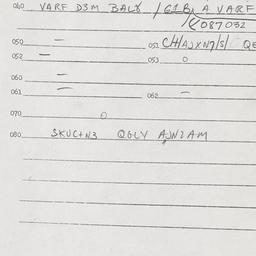 040 VARF D3M BAL8 / 61B A VARF
087032
050 — 051 CH/AJXN7/S/ QE
052 — 053 0
060 —
061 — 062 —
070 0
080 SKUC+N3 QGLY AJN2AM